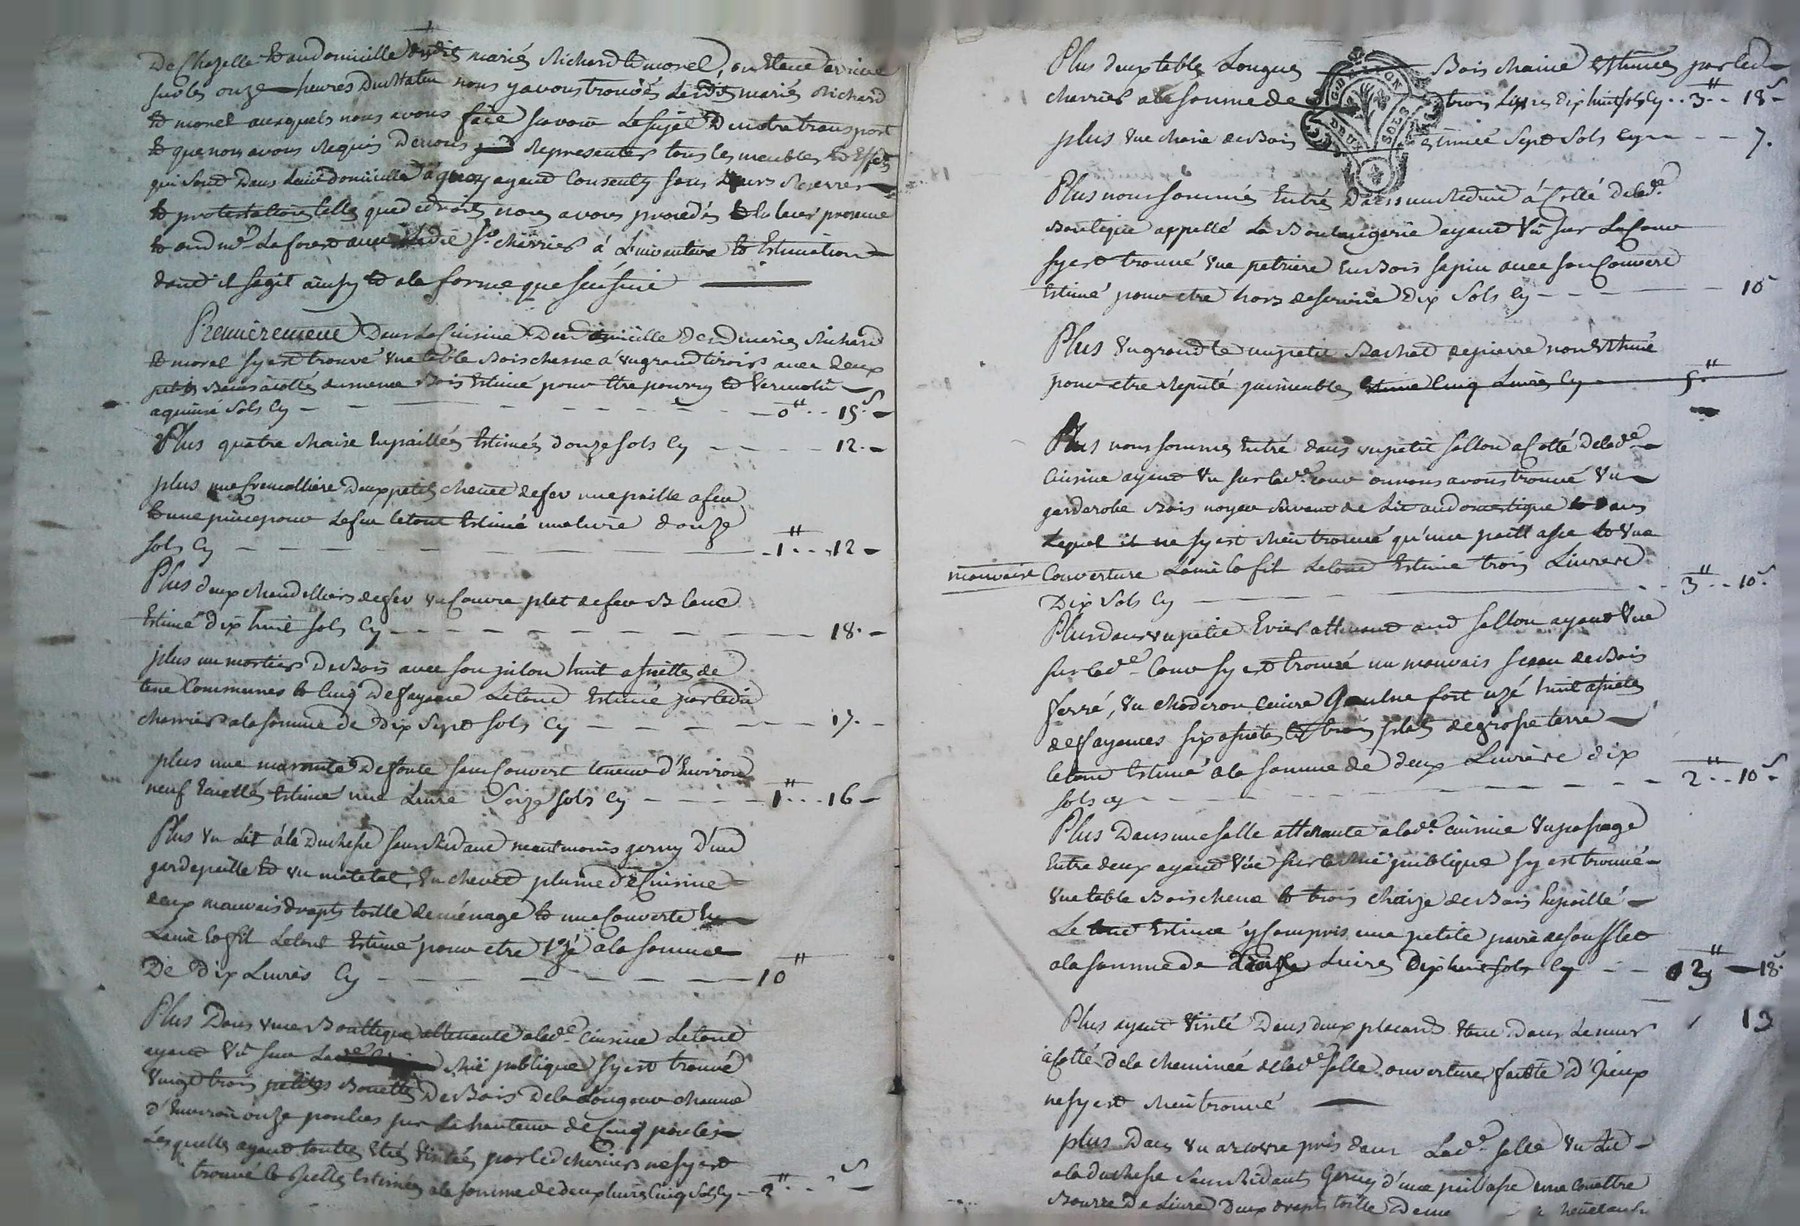 De Chazelle & au domicille desdits mariés Richard & morel, ou etant arrivé
sur les onze heures Du Matin nous y avons trouvés Lesdits mariés Richard
& morel auxquels nous avons fait scavoir Le sujet De notre transport
& que nous avons requis De nous Representer tous les meubles & Effets
qui sont Dans Leur Domicille a quoy ayant Consenty sous Leurs Reserves
& protestations telles que de droit, nous avons procédés & la leur presence
Laforest avec Ledit Sr cherrier à L'inventaire & Estimation
dont il s'agit ainsy & a la forme que sensuit
Premierement Dans La Cuisine Du Domicille Desd mariés Richard
& morel s'y est trouvé une table Bois chesne a un grand tiroir avec deux
petits Bancs a cottés du meme Bois Estimé pour etre pourry & Vermolu
a quinze sols Cy 0" 15s
Plus quatre chaise Enpaillées Estimées douze sols Cy 12
plus une Cremalliere Deux petits chenet de fer une paille a feu
& une pince pour Le feu Le tout Estimé une livre douze
sols Cy 1" 12
Plus deux chandelliers de fer un Couvre plat de fer Blanc
Estimé Dix huit sols Cy 18
plus un mortier De Bois avec son pilon huit assiettes de
terre Communes & Cinq De fayance Le tout Estimé par ledit
cherrier a la somme de Dix Sept sols Cy 17
plus une marmitte De fonte sans Couvert teneur d'Environ
neuf Ecuellés Estimé une Livre Seize sols Cy 1" 16
Plus un Lit à la Duchesse sans Rideaux neantmoins garny d'un
garde paille & un matelat, un chevet plume De Cuisine
deux mauvais draps toille de ménage & une Couverte En
Laine & fil Le tout Estimé pour etre Uzé a la somme
De Dix Livres Cy 10"
Plus Dans une Bouttique attenante a lade Cuisine Le tout
ayant Vû sur La Rüe publique s'y est trouvé
Vingt trois petites Bouette De Bois De la Longueur chacune
d'Environ onze pouces sur La hauteur de Cinq pouces
Lesquelles ayant toutes Eté Visitées par led cherrier ne s'y est
trouvé & Estimées a la somme de deux livres Cinq sols Cy 2" 5s
Plus deux table Longues Bois chaine Estimées par led
cherrier a la somme de trois Livres Dix huit sols Cy 3" 18s
plus une chaise de Bois Estimée Sept Sols Cy 7
GENERALITE DE LYON
DEUX SOLS
Plus nous sommes Entré Dans un Reduit á Cotté de lade
Boutique appellé La Boulangerie ayant Vû sur La Cour
s'y est trouvé une petriere En Bois sapin avec son Couvert
Estimé pour etre hors de service Dix Sols Cy 10s
Plus un grand & un petit Bachat de pierre non Estimé
pour etre reputé Estimé Cinq Livres Cy 5"
Plus nous sommes Entré dans un petit sallon a Cotté De lade
Cuisine ayant Vu sur lade Cour ou nous avons trouvé Un
garderobe Bois noyer servant de Lit au domestique & dans
Lequel il ne s'y est Rien trouvé qu'une paillasse & une
mauvaise Couverture Laine & fil Le tout Estimé trois Livres
Dix Sols Cy 3" 10s
Plus dans un petit Evier attenant aud sallon ayant Vue
sur lade Cour s'y est trouvé un mauvais Seau de Bois
ferré, un chodron Cuivre fort uzé huit assiettes
de fayances six assiettes & trois plats de grosse terre
Le tout Estimé à la somme de deux Livres dix
sols cy 2" 10s
Plus Dans une Salle attenante a lade Cuisine Un passage
Entre deux ayant Vüe sur la Rüe publique s'y est trouvé
une table Bois chene & trois chaize de Bois Enpaillé
Le tout Estimé y Compris une petite paire de soufflet
a la somme de Livres Dix huit sols Cy 18s
13
Plus ayant Visité Dans deux placards Etant Dans Le mur
a Cotté de la cheminée de lade salle ouverture faitte d'Iceux
ne s'y est Rien trouvé
plus Dans un pres dans Lade salle un Lit
a la duchesse sans Rideaux Garny d'une paillasse une Couettre
Bourre De Livre Deux draps toille De